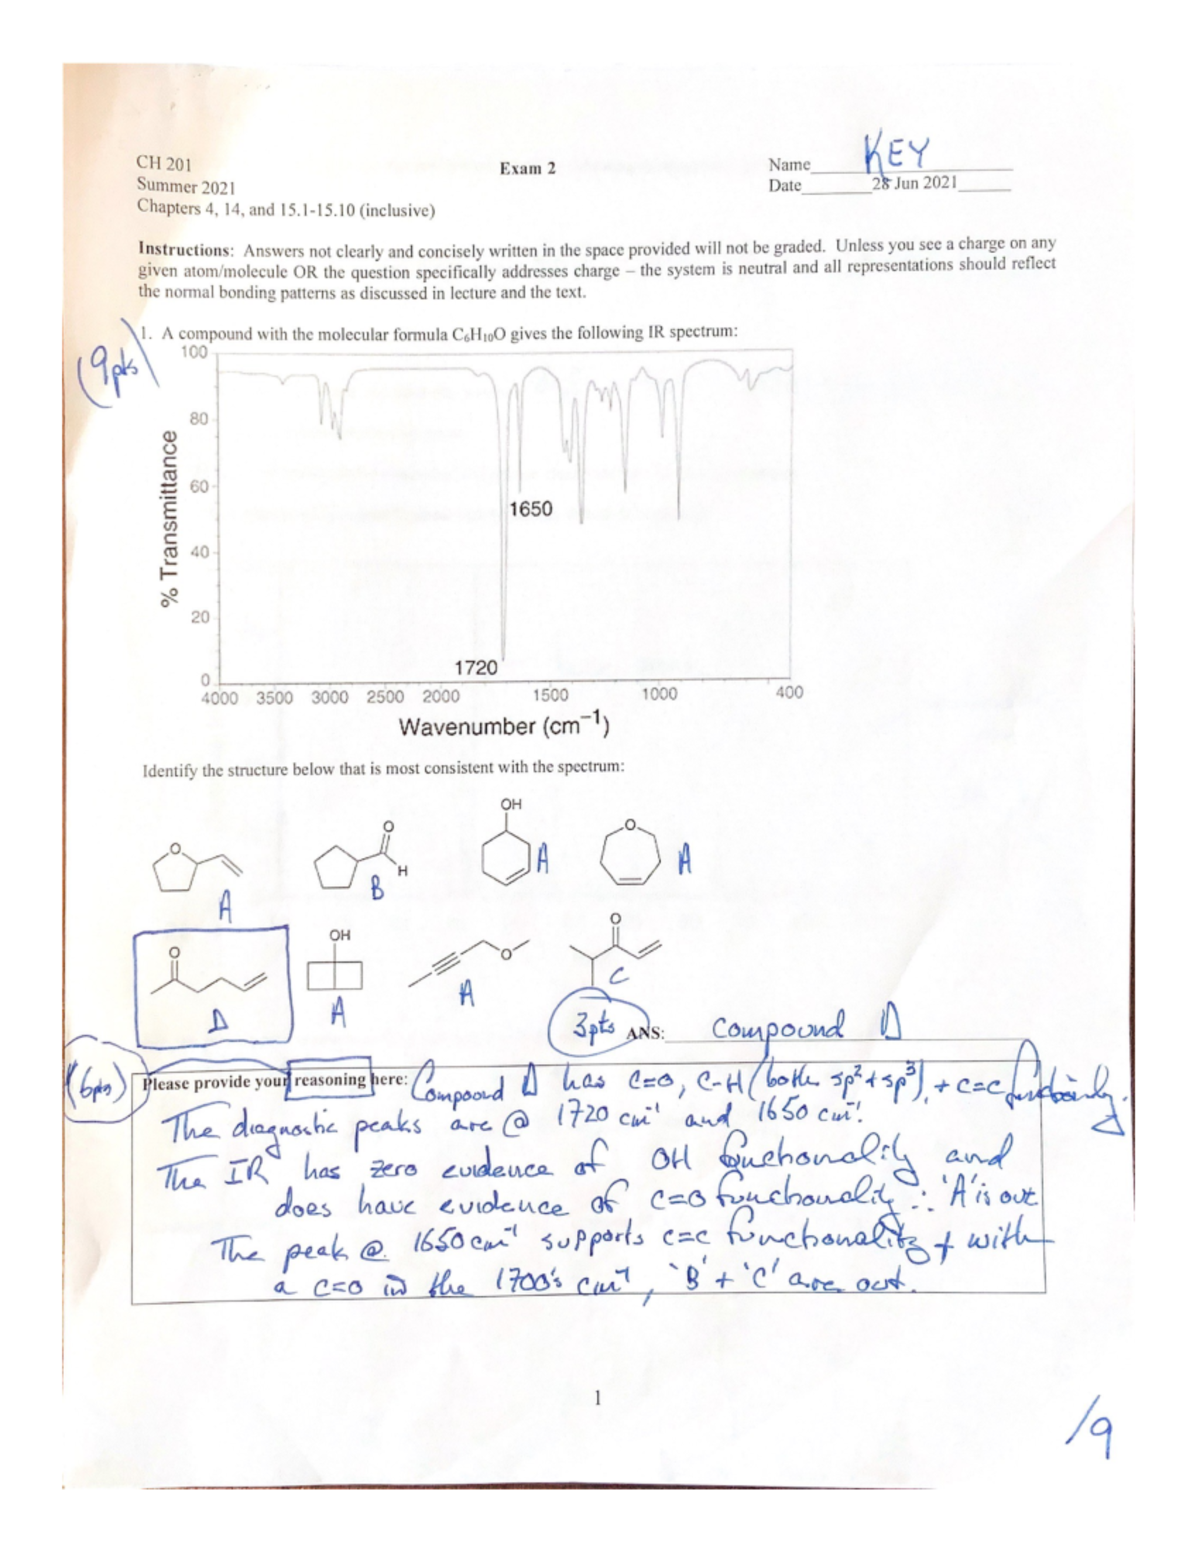 KEY
CH 201
Exam 2
Name
Summer 2021
Date 28 Jun 2021
Chapters 4, 14, and 15.1-15.10 (inclusive)
Instructions: Answers not clearly and concisely written in the space provided will not be graded. Unless you see a charge on any
given atom/molecule OR the question specifically addresses charge – the system is neutral and all representations should reflect
the normal bonding patterns as discussed in lecture and the text.
(9pts)
1. A compound with the molecular formula C₆H₁₀O gives the following IR spectrum:
100
80
60
40
20
0
% Transmittance
1650
1720
4000 3500 3000 2500 2000 1500 1000 400
Wavenumber (cm⁻¹)
Identify the structure below that is most consistent with the spectrum:
O
A
O
H
B
OH
A
O
A
O
D
OH
A
O
A
O
C
3pts ANS: Compound D
(6pts) Please provide your reasoning here: Compound D has C=O, C-H (both sp² + sp³), + C=C functionality.
The diagnostic peaks are @ 1720 cm⁻¹ and 1650 cm⁻¹.
The IR has zero evidence of OH functionality and
does have evidence of C=O functionality ∴ 'A' is out
The peak @ 1650 cm⁻¹ supports C=C functionality + with
a C=O in the 1700's cm⁻¹, 'B' + 'C' are out.
1
/9